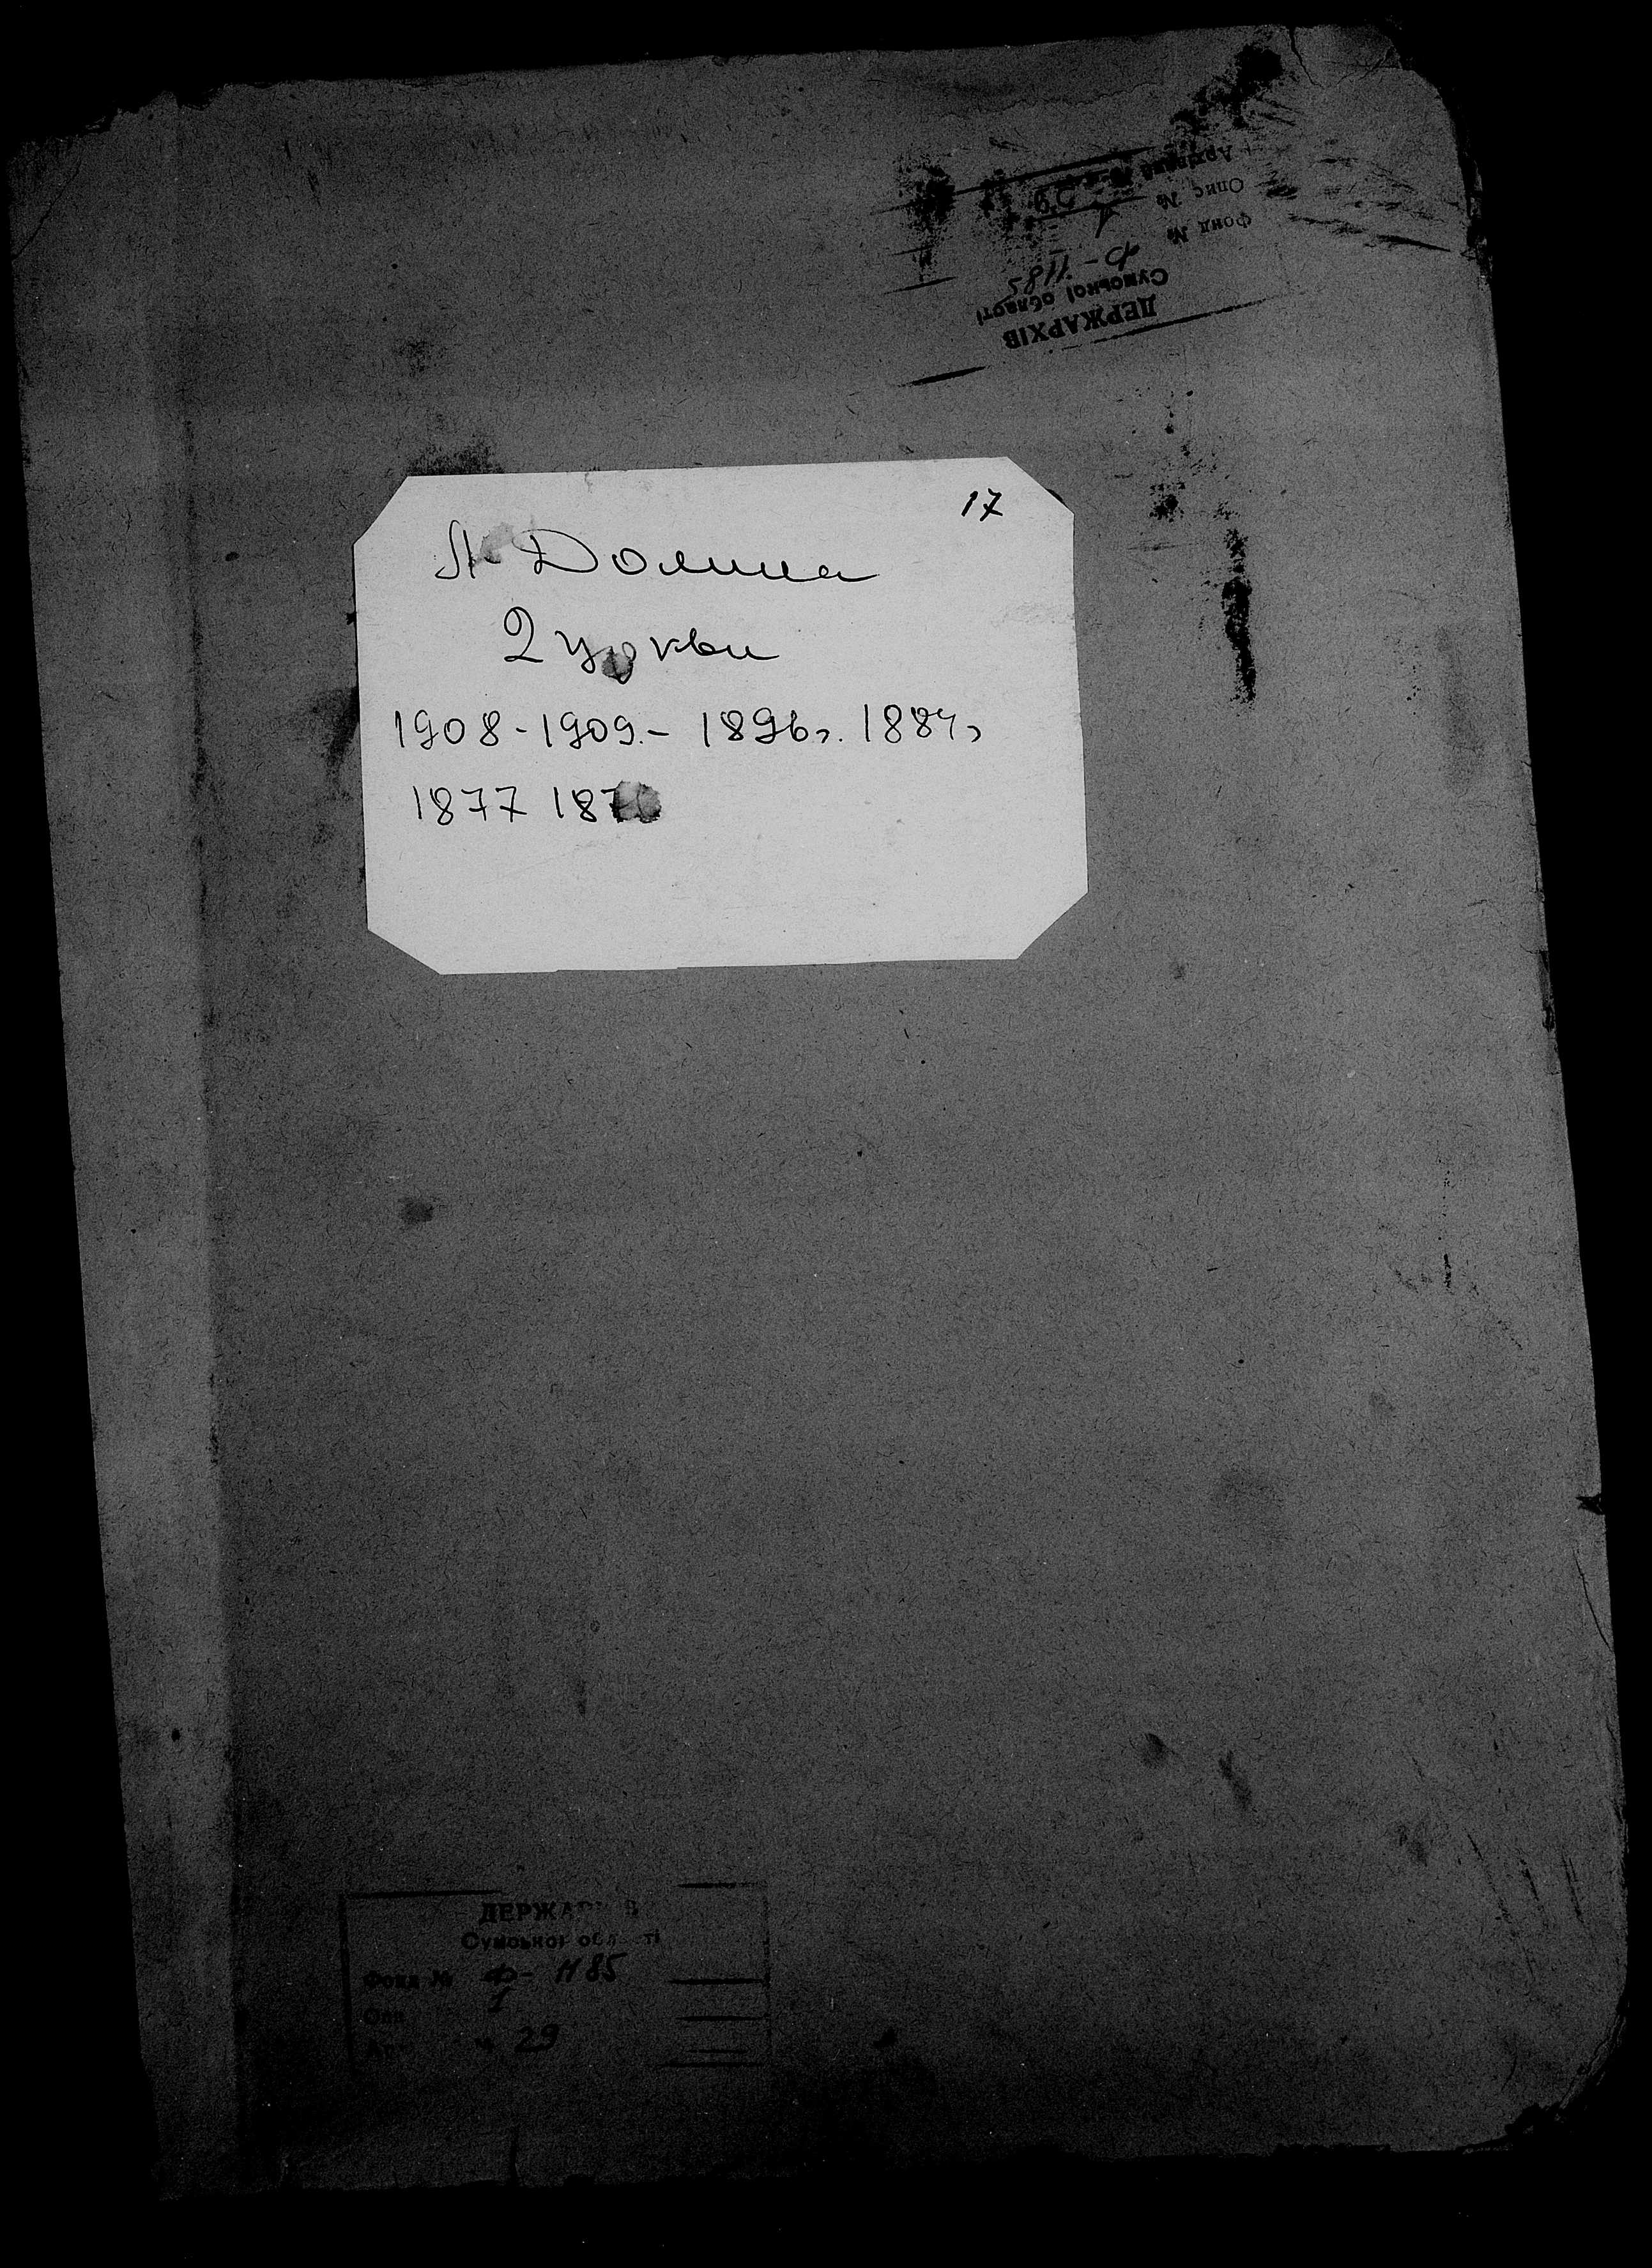 ДЕРЖАРХІВ
Сумської області
Фонд № Ф-1185
Опис № 1
29
17
Л Долина
2 церкви
1908-1909.- 1896г. 1884г
1877 187
Сумської області
Фонд № Ф- 1185
1
29